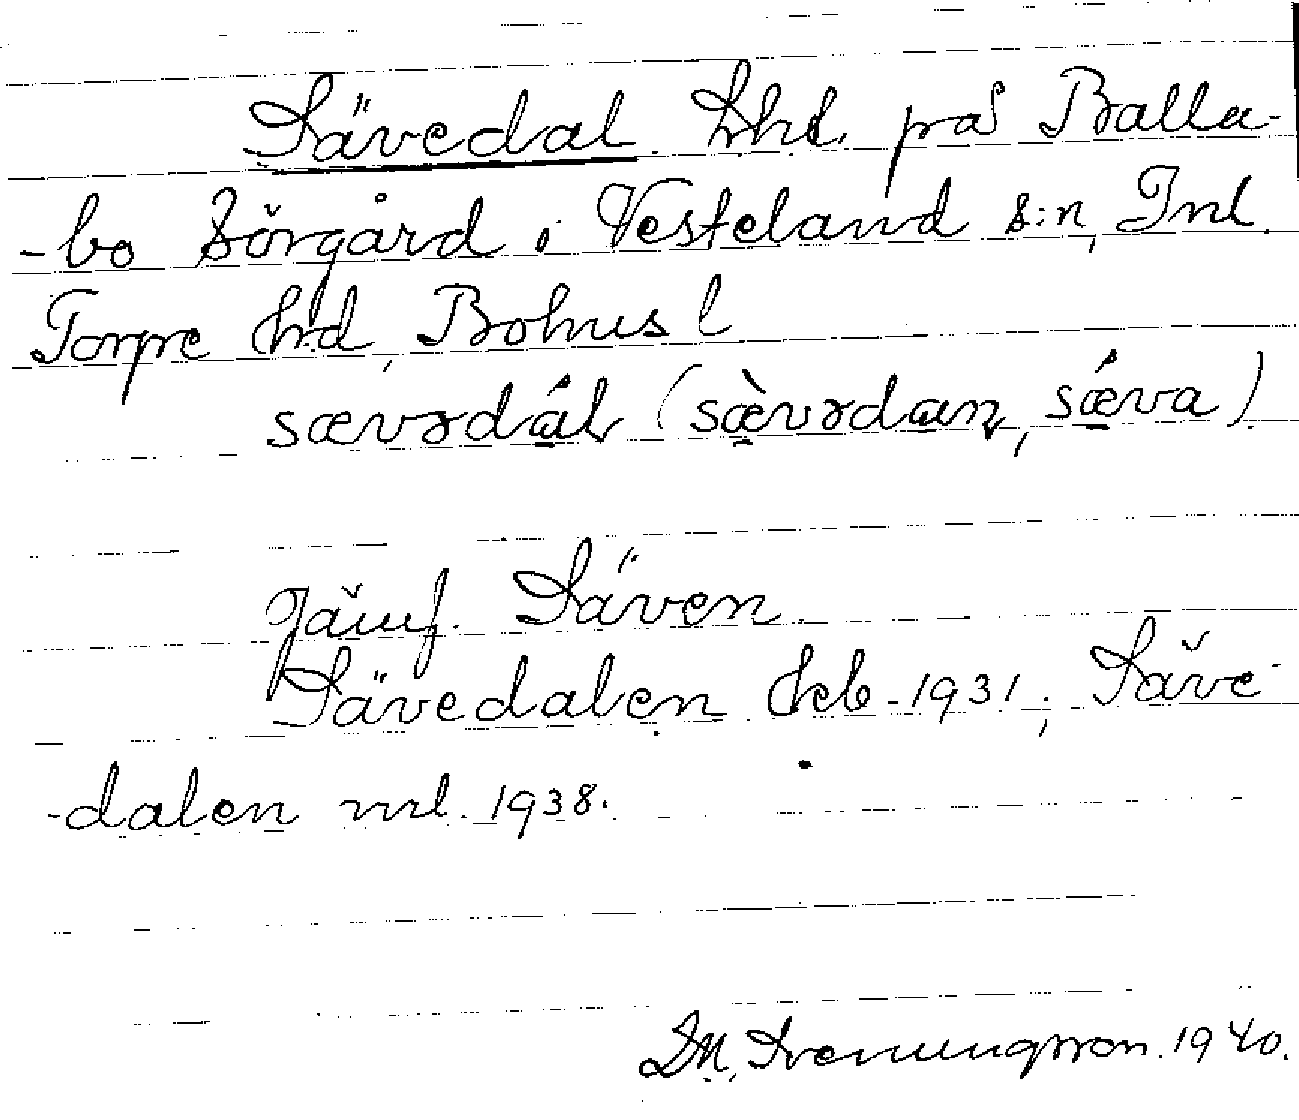 Sävedal. Lht. på Balla-
-bo Sörgård i Vesteland s:n, Inl.
Torpe hd, Bohusl
sævədál (sæ̀vədan, sǽva)
Jämf. Säven.
Sävedalen Heb. 1931; Säve-
-dalen ml. 1938.
D.M. Svenungsson. 1940.